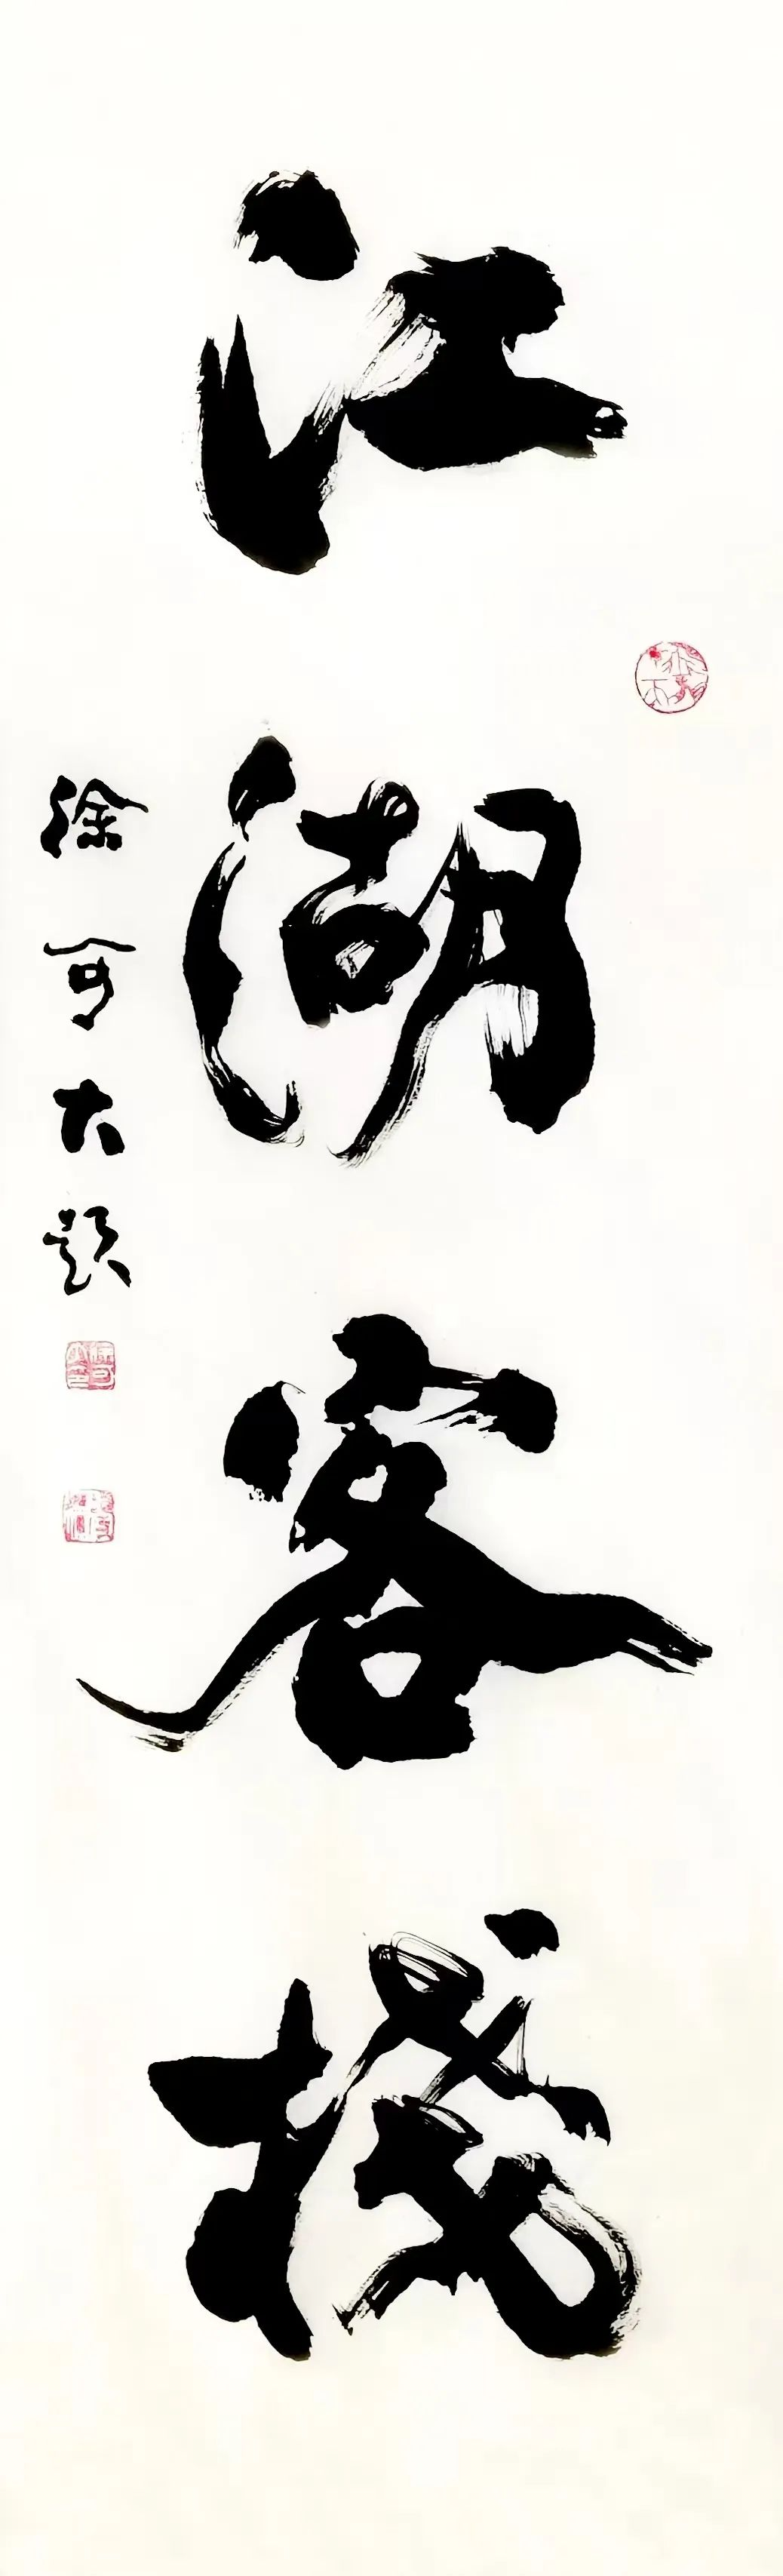 江湖客棧
徐可大题